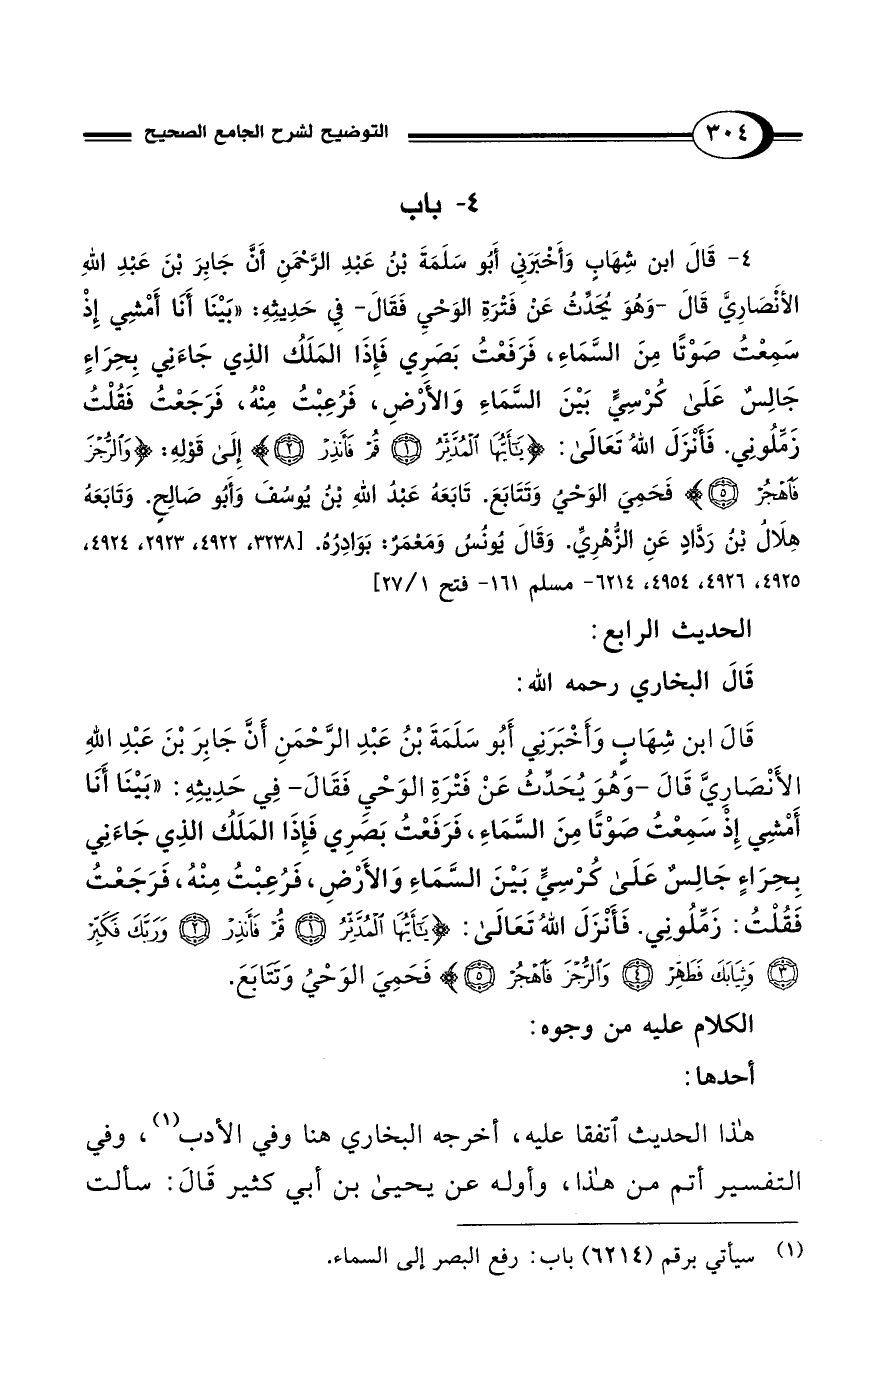 ٣٠٤ التوضيح لشرح الجامع الصحيح
٤- باب
٤- قَالَ ابن شِهَابٍ وَأَخْبَرَنِي أَبُو سَلَمَةَ بْنُ عَبْدِ الرَّحْمَنِ أَنَّ جَابِرَ بْنَ عَبْدِ اللهِ
الأَنْصَارِيَّ قَالَ -وَهُوَ يُحَدِّثُ عَنْ فَتْرَةِ الوَحْيِ فَقَالَ- فِي حَدِيثِهِ: «بَيْنَا أَنَا أَمْشِي إِذْ
سَمِعْتُ صَوْتًا مِنَ السَّمَاءِ، فَرَفَعْتُ بَصَرِي فَإِذَا المَلَكُ الذِي جَاءَنِي بِحِرَاءٍ
جَالِسٌ عَلَىٰ كُرْسِيٍّ بَيْنَ السَّمَاءِ وَالأَرْضِ، فَرُعِبْتُ مِنْهُ، فَرَجَعْتُ فَقُلْتُ
زَمِّلُونِي. فَأَنْزَلَ اللهُ تَعَالَىٰ: ﴿يَٰٓأَيُّهَا ٱلْمُدَّثِّرُ ۝١ قُمْ فَأَنذِرْ ۝٢﴾ إِلَىٰ قَوْلِهِ: ﴿وَٱلرُّجْزَ
فَٱهْجُرْ ۝٥﴾ فَحَمِيَ الوَحْيُ وَتَتَابَعَ. تَابَعَهُ عَبْدُ اللهِ بْنُ يُوسُفَ وَأَبُو صَالِحٍ. وَتَابَعَهُ
هِلَالُ بْنُ رَدَّادٍ عَنِ الزُّهْرِيِّ. وَقَالَ يُونُسُ وَمَعْمَرٌ: بَوَادِرُهُ. [٣٢٣٨، ٤٩٢٢، ٢٩٢٣، ٤٩٢٤،
٤٩٢٥، ٤٩٢٦، ٤٩٥٤، ٦٢١٤- مسلم ١٦١- فتح ٢٧/١]
الحديث الرابع:
قَالَ البخاري رحمه الله:
قَالَ ابن شِهَابٍ وَأَخْبَرَنِي أَبُو سَلَمَةَ بْنُ عَبْدِ الرَّحْمَنِ أَنَّ جَابِرَ بْنَ عَبْدِ اللهِ
الأَنْصَارِيَّ قَالَ -وَهُوَ يُحَدِّثُ عَنْ فَتْرَةِ الوَحْيِ فَقَالَ- فِي حَدِيثِهِ: «بَيْنَا أَنَا
أَمْشِي إِذْ سَمِعْتُ صَوْتًا مِنَ السَّمَاءِ، فَرَفَعْتُ بَصَرِي فَإِذَا المَلَكُ الذِي جَاءَنِي
بِحِرَاءٍ جَالِسٌ عَلَىٰ كُرْسِيٍّ بَيْنَ السَّمَاءِ وَالأَرْضِ، فَرُعِبْتُ مِنْهُ، فَرَجَعْتُ
فَقُلْتُ: زَمِّلُونِي. فَأَنْزَلَ اللهُ تَعَالَىٰ: ﴿يَٰٓأَيُّهَا ٱلْمُدَّثِّرُ ۝١ قُمْ فَأَنذِرْ ۝٢ وَرَبَّكَ فَكَبِّرْ
۝٣ وَثِيَابَكَ فَطَهِّرْ ۝٤ وَٱلرُّجْزَ فَٱهْجُرْ ۝٥﴾ فَحَمِيَ الوَحْيُ وَتَتَابَعَ.
الكلام عليه من وجوه:
أحدها:
هذا الحديث ٱتفقا عليه، أخرجه البخاري هنا وفي الأدب(١)، وفي
التفسير أتم من هذا، وأوله عن يحيىٰ بن أبي كثير قَالَ: سألت
(١) سيأتي برقم (٦٢١٤) باب: رفع البصر إلى السماء.